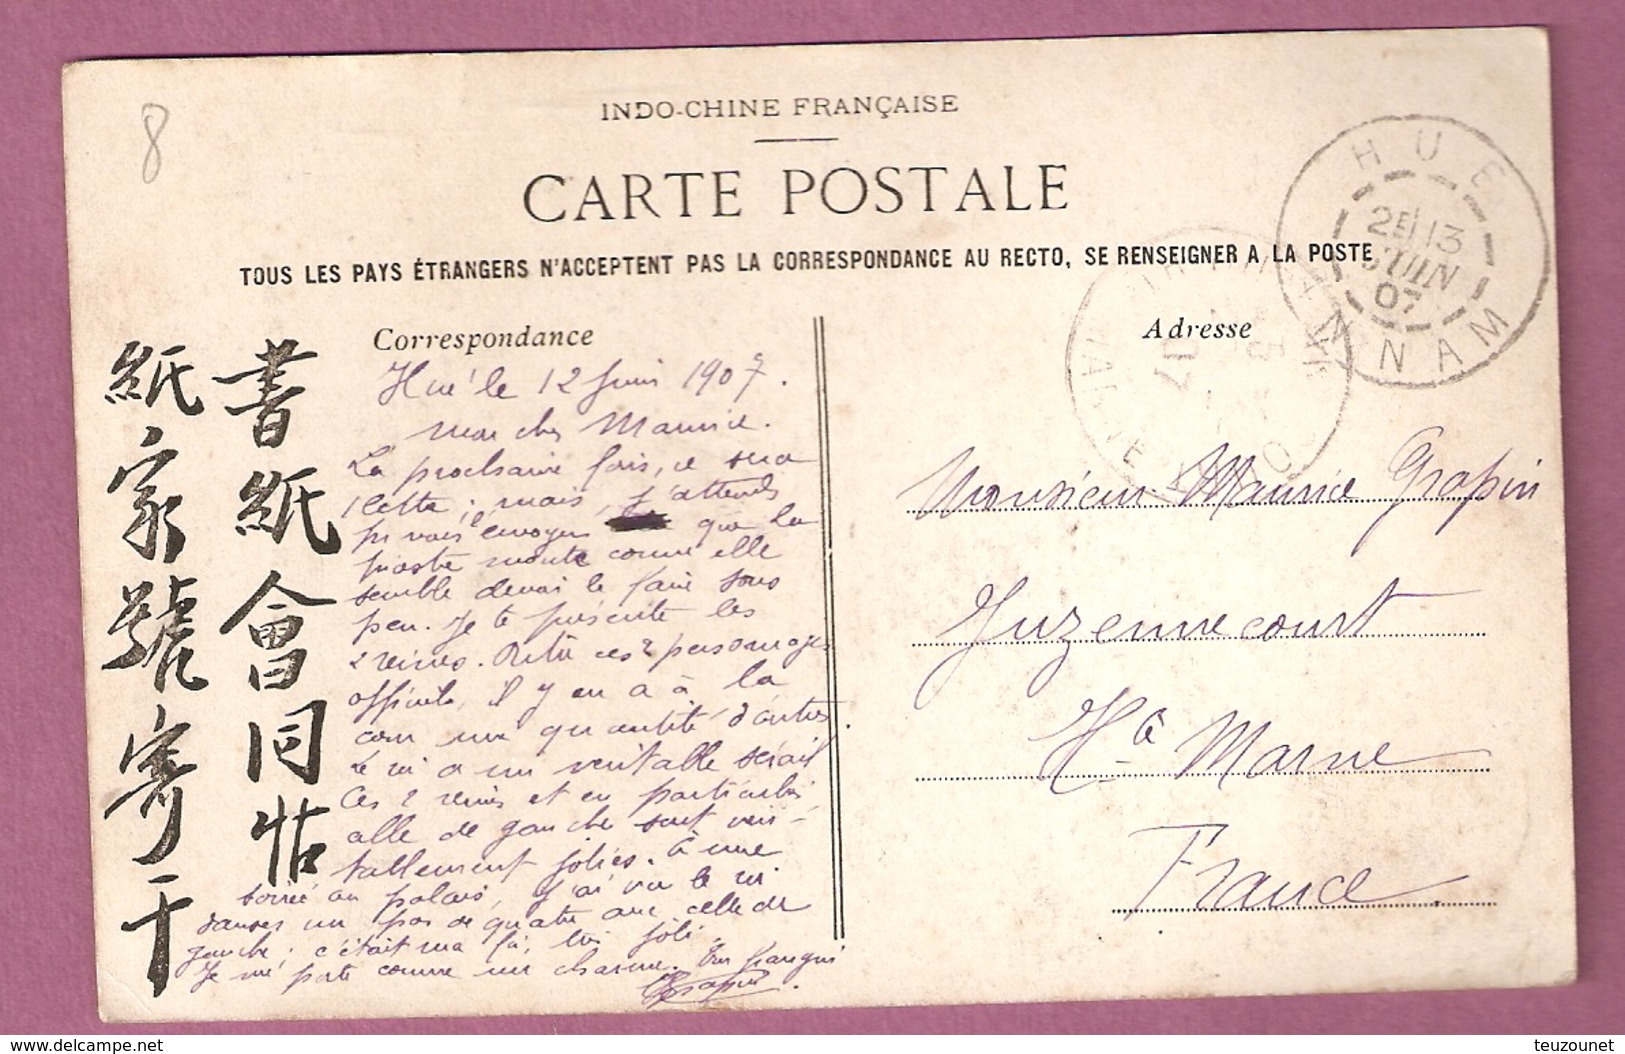 8
INDO-CHINE FRANÇAISE
CARTE POSTALE
TOUS LES PAYS ÉTRANGERS N'ACCEPTENT PAS LA CORRESPONDANCE AU RECTO, SE RENSEIGNER A LA POSTE
HUE
2E 13
JUIN
07
ANNAM
書紙會同帖
紙家號寄干
Correspondance
Hué le 12 Juin 1907.
Mon cher Maurice.
La prochaine fois, ce sera
1 lettre; mais, j'attends
pr vous envoyer que la
piastre monte comme elle
semble devoir le faire sous
peu. Je te présente les
2 reines. Outre ces 2 personnages
officiels, il y en a à la
cour une quantité d'autres.
Le roi a un véritable sérail
Ces 2 reines et en particulier
celle de gauche sont véri-
tablement jolies. A une
soirée au palais, j'ai vu le roi
danser un pas de quatre avec celle de
gauche; c'était ma foi, très joli.
Je me porte comme un charme. Ton frangin
Grapin.
Adresse
Monsieur Maurice Grapin
Juzennecourt
Hte Marne
France.
delcampe.net
teuzounet